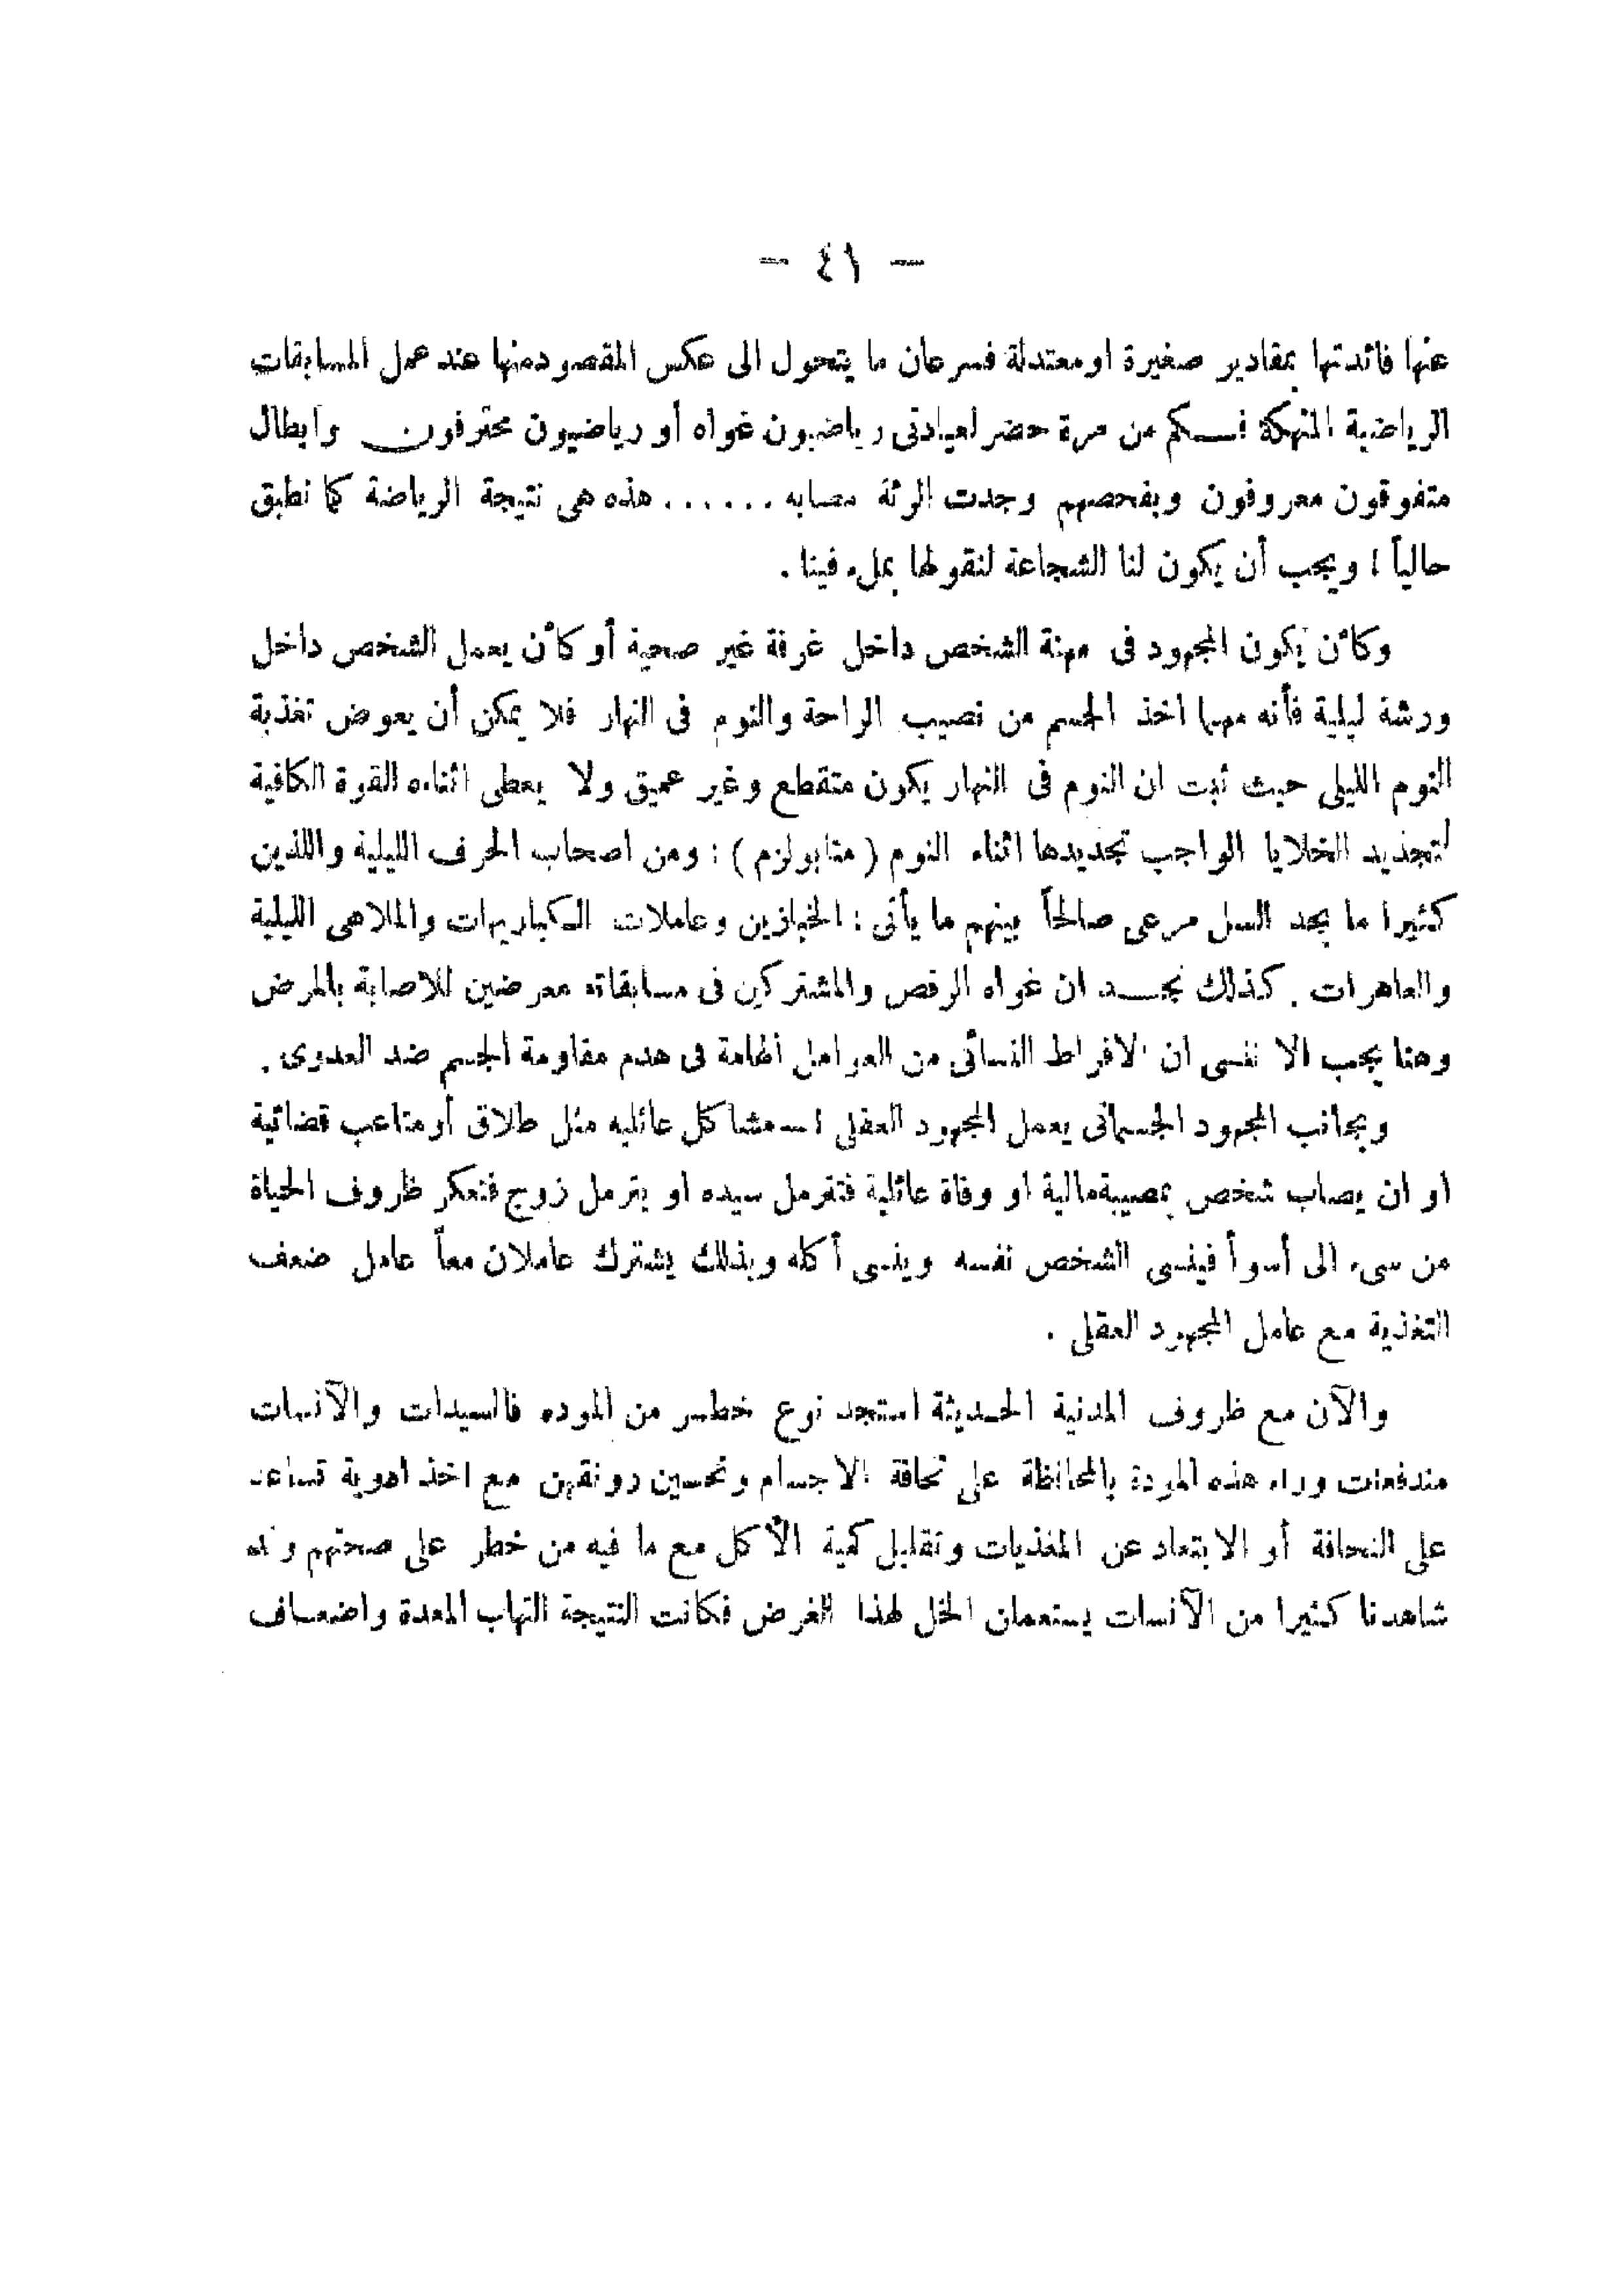 — ٤١ —
عنها فائدتها بمقادير صغيرة او معتدلة فسرعان ما يتحول الى عكس المقصود منها عند عمل المسابقات
الرياضية المنهكة فكم من مرة حضر لعيادتى رياضيون غواه أو رياضيون محترفون وابطال
متفوقون معروفون وبفحصهم وجدت الرئة مصابه ...... هذه هى نتيجة الرياضة كما نطبق
حالياً ! ويجب أن يكون لنا الشجاعة لنقولها بملء فينا .
وكأن يكون المجهود فى مهنة الشخص داخل غرفة غير صحية أو كأن يعمل الشخص داخل
ورشة ليلية فأنه مهما اخذ الجسم من نصيب الراحة والنوم فى النهار فلا يمكن أن يعوض تغذية
النوم الليلى حيث ثبت ان النوم فى النهار يكون متقطع وغير عميق ولا يعطى اثناءه القوة الكافية
لتجذيد الخلايا الواجب تجديدها اثناء النوم ( متابولزم ) : ومن اصحاب الحرف الليلية واللذين
كثيرا ما يجد السل مرعى صالحاً بينهم ما يأتى : الخبازين وعاملات الكباريهات والملاهى الليلية
والعاهرات . كذلك نجد ان غواه الرقص والمشتركين فى مسابقاته معرضين للاصابة بالمرض
وهنا يجب الا ننسى ان الافراط النسائى من العوامل الهامة فى هدم مقاومة الجسم ضد العدوى .
وبجانب المجهود الجسمانى يعمل المجهود العقلى : ـ مشاكل عائليه مثل طلاق أو متاعب قضائية
او ان يصاب شخص بمصيبة مالية او وفاة عائلية فتترمل سيده او يترمل زوج فتعكر ظروف الحياة
من سىء الى أسوأ فينسى الشخص نفسه وينسى أكله وبذلك يشترك عاملان معاً عامل ضعف
التغذية مع عامل المجهود العقلى .
والآن مع ظروف المدنية الحديثة استجد نوع خطر من الموده فالسيدات والآنسات
مندفعات وراء هذه المودة بالمحافظة على نحافة الاجسام وتحسين رونقهن مع اخذ ادوية تساعد
على النحافة أو الابتعاد عن المغذيات وتقليل كمية الأكل مع ما فيه من خطر على صحتهم وقد
شاهدنا كثيرا من الآنسات يستعملن الخل لهذا الغرض فكانت النتيجة التهاب المعدة واضعاف